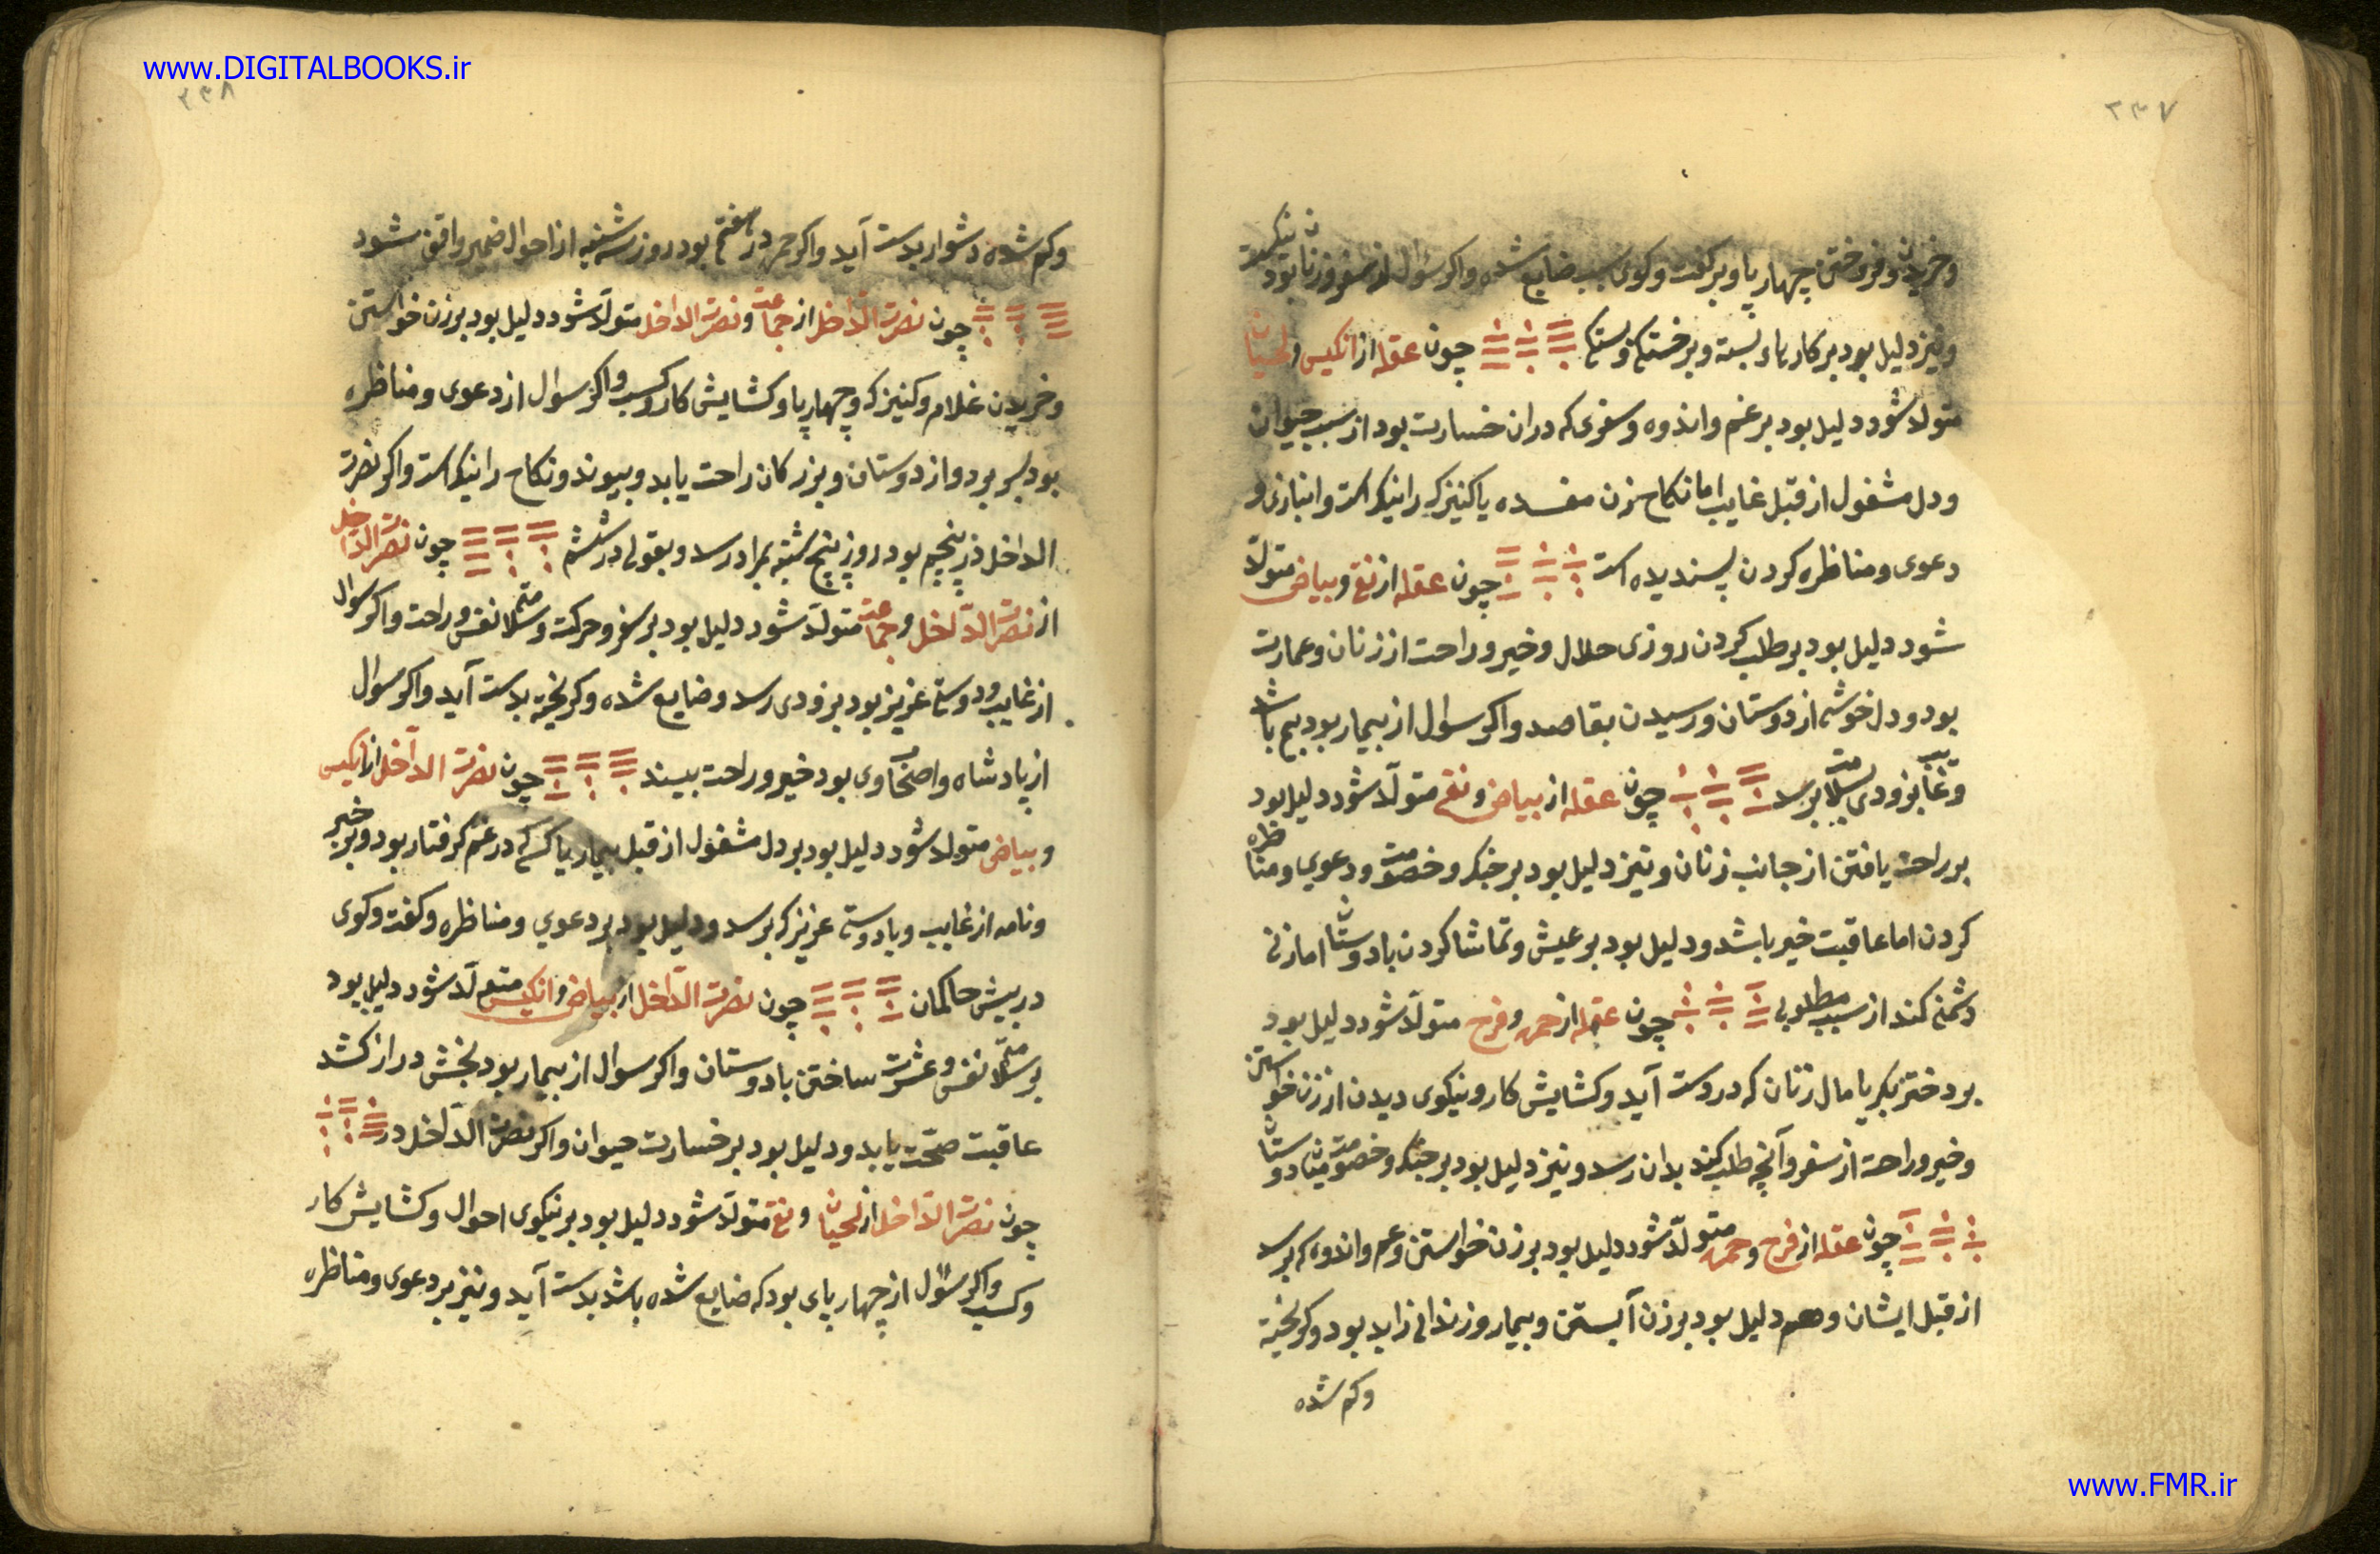 www.DIGITALBOOKS.ir
۲۳۷
وخریدن وفروختن چهارپا وبر کفت وکوی بسبب ضایع شده واکر سؤال از سفر وزنا بود نیکست
ونیز دلیل بود بر کارهاء بسته وبر خستکی وبستکی چون عقله از انکیس ولحیان
متولد شود دلیل بود بر غم واندوه وسفری که دران خسارت بود از سبب حیوان
ودل مشغول از قبل غایب اما نکاح زن مفسده یا کنیزک را نیکو است وانبازی و
دعوی ومناظره کردن پسندیده است چون عقله از نقی وبیاض متولّد
شود دلیل بود بر طلب کردن روزی حلال وخیر وراحت از زنان وعمارت
بود ودل خوشی از دوستان ورسیدن بمقاصد واکر سوال از بیمار بود بیم باشد
وغایب بزودی بسلامت برسد چون عقله از بیاض ونقی متولّد شود دلیل بود
بر راحت یافتن از جانب زنان ونیز دلیل بود بر جنک وخصومت ودعوی ومناظره
کردن اما عاقبت خیر باشد ودلیل بود بر عیش وتماشا کردن با دوستان اما زنی
دشمنی کند از سبب مطلوبی چون عقله از حمره وفرح متولّد شود دلیل بود
بر دختر بکر یا مال زنان که در دست آید وکشایش کار ونیکوی دیدن از زن خواستن
وخیر وراحت از سفر وآنچه طلب کند بدان رسد ونیز دلیل بود بر جنک وخصومت میان دوستان
چون عقله از فرح وحمره متولّد شود دلیل بود بر زن خواستن وغم واندوه که برسد
از قبل ایشان وهم دلیل بود بر زن آبستن وبیمار وزندانی زاید بود وکریخته
وکم شده
۲۳۸
وکم شده دشوار بدست آید واکر حمره در هفتم بود روز سه‌شنبه از احوال ضمیر واقف شود
چون نصرت الدّاخل از جماعت ونصرت الداخل متولّد شود دلیل بود بر زن خواستن
وخریدن غلام وکنیزک وچهارپا وکشایش کار وکسب واکر سوال از دعوی ومناظره
بود بسر برد واز دوستان وبزرکان راحت یابد وپیوند ونکاح را نیکو است واکر نصرت
الداخل در پنجم بود روز پنج شنبه بمراد رسد وبقولی در ششم چون نصرت الدّاخل
از نصرت الدّاخل وجماعت متولّد شود دلیل بود بر سفر وحرکت وسلامتی نفس وراحت واکر سوال
از غایب ودوستی عزیز بود بزودی رسد وضایع شده وکریخته بدست آید واکر سوال
از پادشاه واصحاب وی بود خیر وراحت بیند چون نصرت الدآخل از انکیس
وبیاض متولد شود دلیل بود بر دل مشغول از قبل بیمار یا کسی که در غم کرفتار بود وبر خبر
ونامه از غایب ویا دوستی عزیز که برسد ودلیل بود بر دعوی ومناظره وکفت وکوی
در پیش حاکمان چون نصرت الدّاخل از بیاض وانکیس متولّد شود دلیل بود
بر سلامتی نفس وعشرت ساختن با دوستان واکر سوال از بیمار بود بخش دراز کشد
عاقبت صحّت یابد ودلیل بود بر خسارت حیوان واکر نصرت الدّاخل در
چون نصرت الدّاخل از لحیان ونقی متولّد شود دلیل بود بر نیکوی احوال وکشایش کار
وکسب واکر سؤال از چهارپای بود که ضایع شده باشد بدست آید ونیز بر دعوی ومناظره
www.FMR.ir